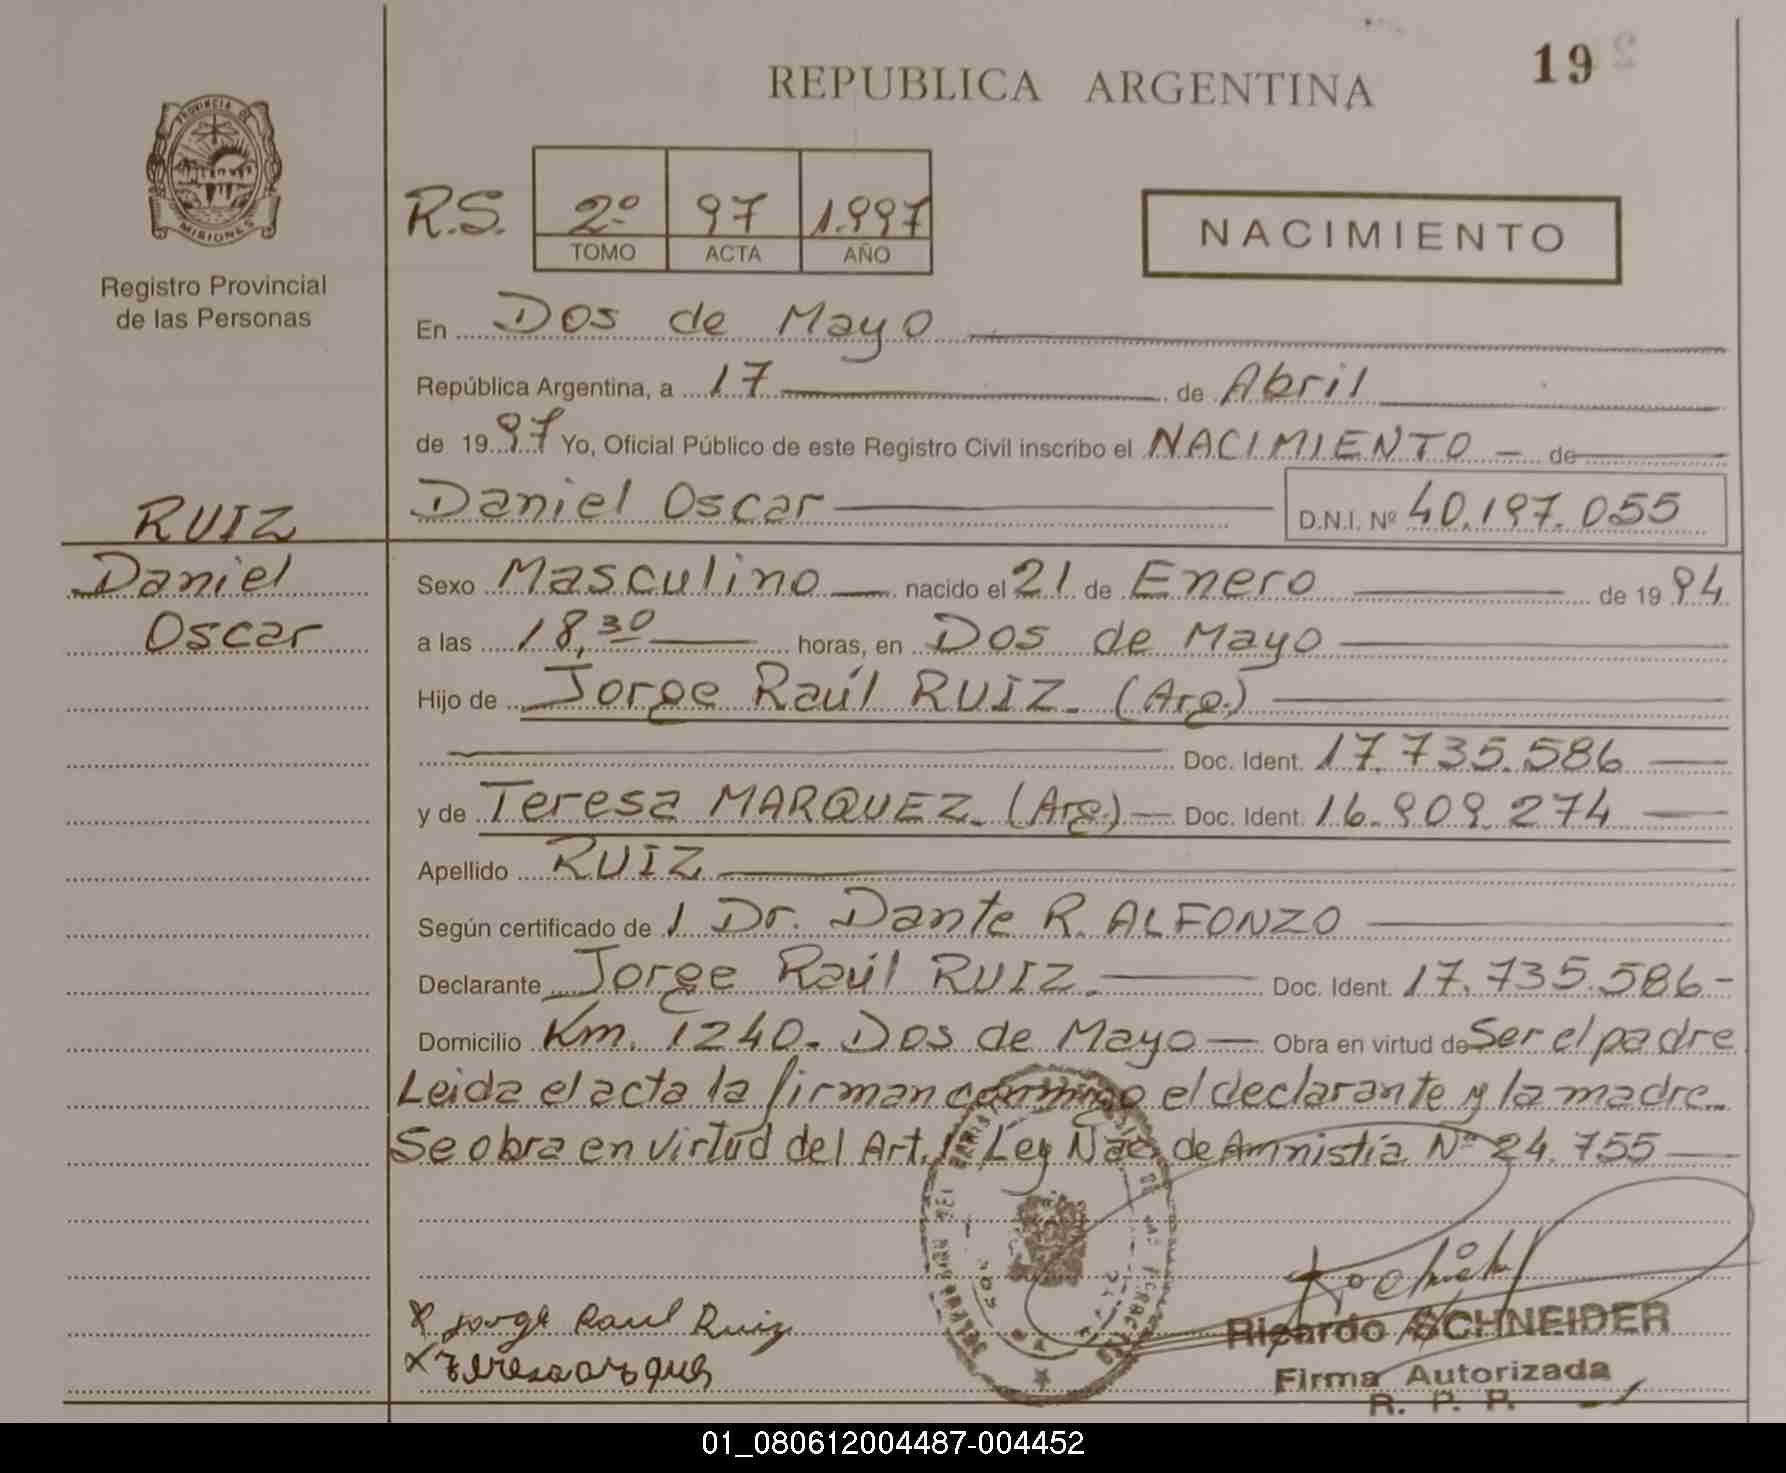 19
REPUBLICA ARGENTINA
PROVINCIA DE
MISIONES
Registro Provincial
de las Personas
R.S. 2º 97 1.997
TOMO ACTA AÑO
NACIMIENTO
En Dos de Mayo
República Argentina, a 17 de Abril
de 1997 Yo, Oficial Público de este Registro Civil inscribo el NACIMIENTO - de
RUIZ
Daniel Oscar D.N.I. Nº 40.197.055
Daniel
Oscar
Sexo Masculino nacido el 21 de Enero de 1994
a las 18,30 horas, en Dos de Mayo
Hijo de Jorge Raúl RUIZ. (Arg.)
Doc. Ident. 17.735.586
y de Teresa MARQUEZ. (Arg.) Doc. Ident. 16.909.274
Apellido RUIZ
Según certificado de 1 Dr. Dante R. ALFONZO
Declarante Jorge Raúl RUIZ. Doc. Ident. 17.735.586-
Domicilio Km. 1240. Dos de Mayo Obra en virtud de Ser el padre
Leida el acta la firman conmigo el declarante y la madre.
Se obra en virtud del Art. 1º Ley Nac. de Amnistía Nº 24.755
Jorge Raul Ruiz
Ricardo SCHNEIDER
Firma Autorizada
R. P. P.
01_080612004487-004452